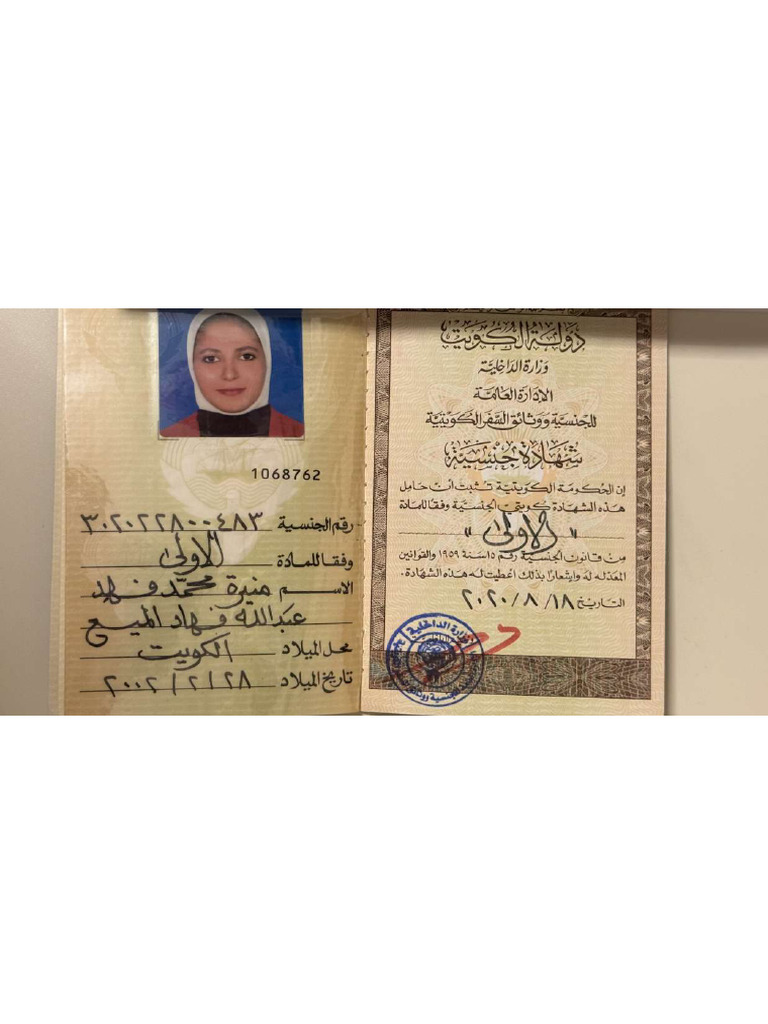 دولة الكويت
وزارة الداخلية
الإدارة العامة
للجنسية ووثائق السفر الكويتية
شهادة جنسية
إن الحكومة الكويتية تثبت أن حامل
هذه الشهادة كويتي الجنسية وفقا للمادة
" الاولى "
من قانون الجنسية رقم ١٥ لسنة ١٩٥٩ والقوانين
المعدله له وإشعارا بذلك اعطيت له هذه الشهادة.
التاريخ ٢٠٢٠/٨/١٨
وزارة الداخلية
1068762
رقم الجنسية ٣٠٢٠٢٢٨٠٠٤٨٣
وفقا للمادة الاولى
الاسم منيرة محمد فهد
عبدالله فهاد الميع
محل الميلاد الكويت
تاريخ الميلاد ٢٠٠٢/٢/٢٨